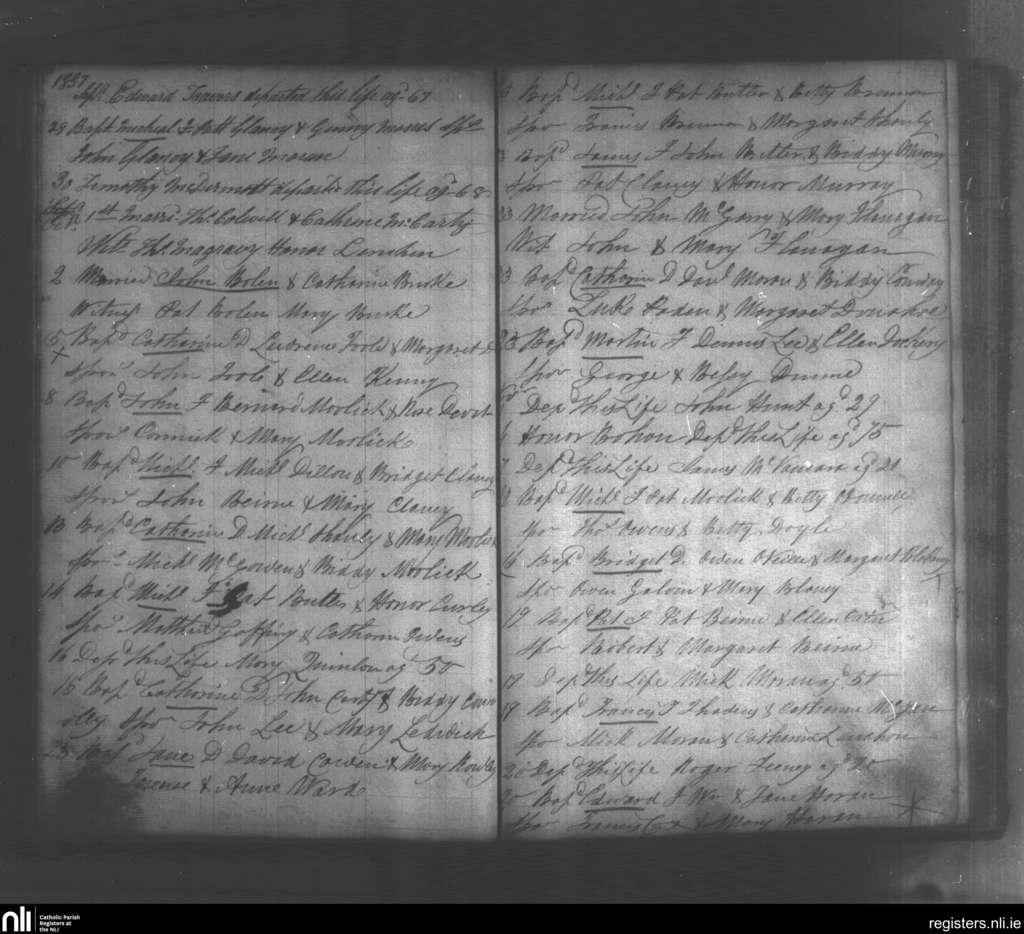 1837
Edward Travers departed this life agd 67
29 Bapt Micheal F Patt Glancy & Spo
John Glancy & Jane
30 Timothy McDermott departd this life agd 68
Octr 1st Married Thos Colwell & Catherine McCarty
Witt Thos Magravy Honor Lenihan
2 Married John Bolen & Catharine Burke
Witness Pat Bolen Mary Burke
5 Bapd Catharine D Lawrence Toole & Margaret D
Spor John Toole & Ellen Kenny
8 Bapd John F Bernard Moolick & Rose
Spor Cormick & Mary Moolick
10 Bapd Michl F Michl Dillon & Bridget Clancy
Spor John Beirne & Mary Clancy
13 Bapd Catharine D Michl Shanly & Mary Moolick
Spor Michl McGowen & Biddy Moolick
14 Bapd Michl F Pat Butler & Honor Curley
Spor Mathew Gaffiny & Catharine Owens
16 Depd this Life Mary Quinlon agd 50
15 Bapd Catharine D John & Biddy
Spor John Lee & Mary Ledwick
23 Bapd Jane D David Cowen & Mary Rowley
& Anne Ward
Bapd Michl F Pat Butler & Betty Brennan
Spor Francis Brennan & Margaret Shanly
Bapd James F John Butler & Biddy
Spor Pat Clancy & Honor Murray
23 Married John McGarry & Mary Flanagan
Wit John & Mary Flanagan
23 Bapd Catharine D Danl Moran & Biddy Conway
Spor Luke Paden & Margaret Donahoe
23 Bapd Martin F Dennis Lee & Ellen
Spor George & Bessy Dunne
Depd this Life John Hunt agd 29
Honor Bohan Depd this Life agd 75
Depd this Life James McNamara agd 21
Bapd Michl F Pat Moolick & Betty Odonnell
Spor Thos Owens & Betty Doyle
6 Bapd Bridget D. Owen & Margaret
Spor Owen Galvin & Mary Blaney
19 Bapd Pat F Pat Beirne & Ellen
Spor Robert & Margaret Beirne
18 Dep this Life Mick Moran agd 50
19 Bapd Francis F Thadeus & Catharine
Spor Mick Moran & Catharine Lenahon
20 Depd this Life Roger Feeney agd
20 Bapd Edward F Wm & Jane Horan
Spor Francis Cox & Mary Horan
nli
Catholic Parish
Registers at
the NLI
registers.nli.ie